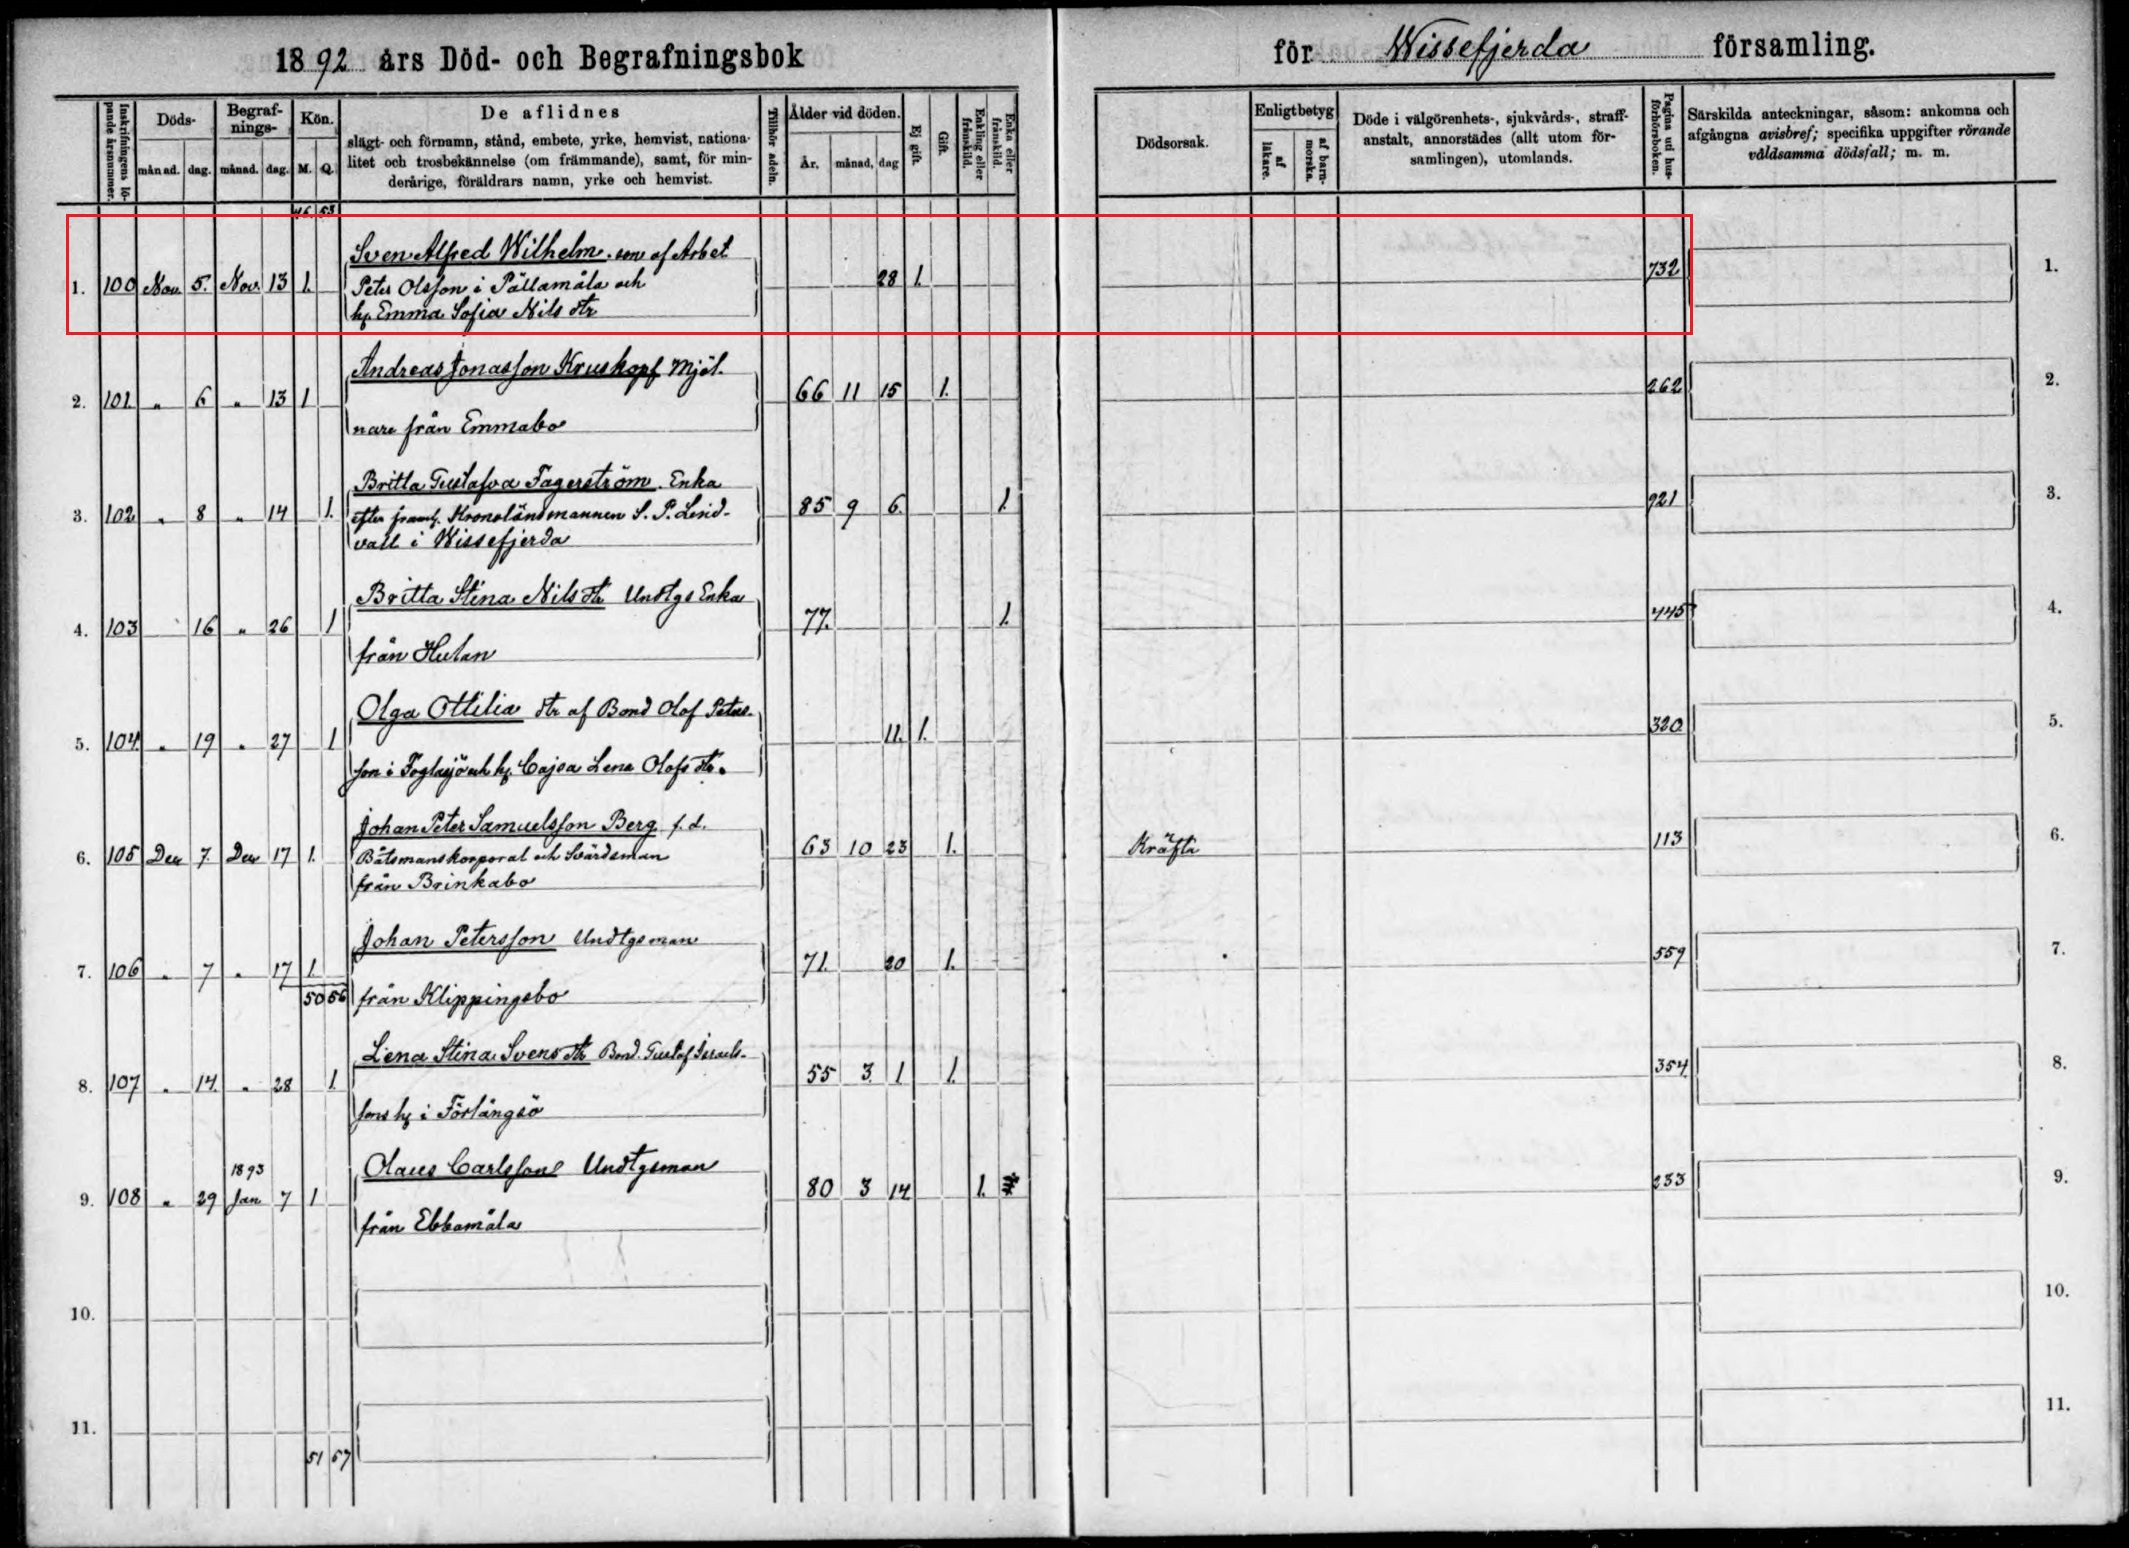 1892 års Död- och Begrafningsbok
för Wissefjerda församling.
Inskrifningens löpande årsnummer.
Döds-
månad. dag.
Begrafnings-
månad. dag.
Kön.
M. Q.
De aflidnes
slägt- och förnamn, stånd, embete, yrke, hemvist, nationa-
litet och trosbekännelse (om främmande), samt, för min-
derårige, föräldrars namn, yrke och hemvist.
Tillhör adeln.
Ålder vid döden.
År. månad, dag
Ej gift.
Gift.
Enkling eller frånskild.
Enka eller frånskild.
Dödsorsak.
Enligt betyg
af läkare.
af barn-morska.
Döde i välgörenhets-, sjukvårds-, straff-
anstalt, annorstädes (allt utom för-
samlingen), utomlands.
Pagina uti hus-förhörsboken.
Särskilda anteckningar, såsom: ankomna och
afgångna avisbref; specifika uppgifter rörande
våldsamma dödsfall; m. m.
46. 53
Sven Alfred Wilhelm. son af Arbet
1. 100 Nov. 5. Nov. 13 1. Peter Olsson i Pällamåla och 28 1. 732 1.
hf. Emma Sofia Nils dtr
Andreas Jonasson Kruskopf Mjöl.
2. 101. " 6 " 13 1 66 11 15 1. 262 2.
nare från Emmabo
Britta Gustafva Fagerström. Enka
3. 102 " 8 " 14 1. efter framl. Kronolänsmannen S. P. Lind- 85 9 6. 1. 921 3.
vall i Wissefjerda
Britta Stina Nils dtr Undtgs Enka
4. 103 16 " 26 1 77. 1. 445 4.
från Hulan
Olga Ottilia dtr af Bond Olof Peters-
5. 104. " 19 " 27 1 11. 1. 320 5.
son i Foglasjö och hf. Cajsa Lena Olofs dtr.
Johan Peter Samuelsson Berg f. d.
6. 105 Dec 7. Dec 17 1. Båtsmanskorporal och Svärdsman 63 10 23 1. Kräfta 113 6.
från Brinkabo
Johan Petersson Undtgsman
7. 106 " 7 " 17 1. 71. 20 1. 559 7.
50 56 från Klippingsbo
Lena Stina Svens dtr Bond. Gustaf Israels-
8. 107 " 14. " 28 1. 55 3. 1 1. 354 8.
sons hf i Förlångsö
1893
Olaus Carlsson Undtgsman
9. 108 " 29 Jan 7 1 80 3 14 1. 233 9.
från Ebbamåla
10. 10.
11. 11.
51 57